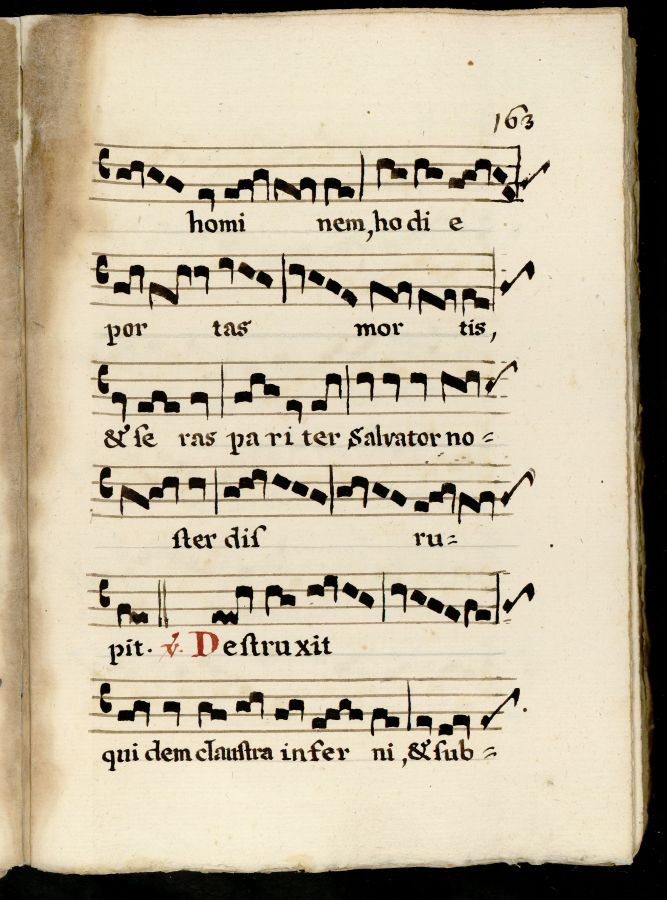 163
homi nem, ho di e
por tas mor tis,
& ſe ras pa ri ter Salvator no=
ſter diſ ru=
pit. ℣. Deſtruxit
qui dem clauſtra in fer ni, & ſub=